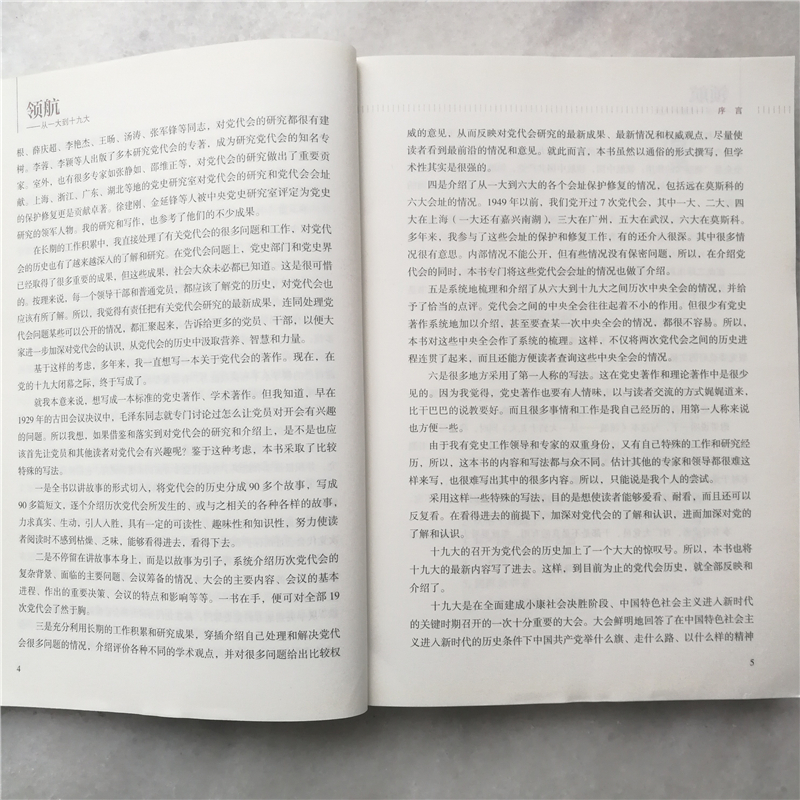 领航
——从一大到十九大
根、薛庆超、李艳杰、王旸、汤涛、张军锋等同志，对党代会的研究都很有建
树。李蓉、李颖等人出版了多本研究党代会的专著，成为研究党代会的知名专
家。室外，也有很多专家如张静如、邵维正等，对党代会的研究做出了重要贡
献。上海、浙江、广东、湖北等地的党史研究室对党代会的研究和党代会会址
的保护修复更是贡献卓著。徐建刚、金延锋等人被中央党史研究室评定为党史
研究的领军人物。我的研究和写作，也参考了他们的不少成果。
在长期的工作积累中，我直接处理了有关党代会的很多问题和工作，对党代
会的历史也有了越来越深入的了解和研究。在党代会问题上，党史部门和党史界
已经取得了很多重要的成果，但这些成果，社会大众未必都已知道。这是很可惜
的。按理来说，每一个领导干部和普通党员，都应该了解党的历史，对党代会也
应该有所了解。所以，我觉得有责任把有关党代会研究的最新成果，连同处理党
代会问题某些可以公开的情况，都汇聚起来，告诉给更多的党员、干部，以便大
家进一步加深对党代会的认识，从党代会的历史中汲取营养、智慧和力量。
基于这样的考虑，多年来，我一直想写一本关于党代会的著作。现在，在
党的十九大闭幕之际，终于写成了。
就我本意来说，想写成一本标准的党史著作、学术著作。但我知道，早在
1929年的古田会议决议中，毛泽东同志就专门讨论过怎么让党员对开会有兴趣
的问题。所以我想，如果借鉴和落实到对党代会的研究和介绍上，是不是也应
该首先让党员和其他读者对党代会有兴趣呢？鉴于这种考虑，本书采取了比较
特殊的写法。
一是全书以讲故事的形式切入，将党代会的历史分成90多个故事，写成
90多篇短文，逐个介绍历次党代会所发生的、或与之相关的各种各样的故事，
力求真实、生动，引人入胜，具有一定的可读性、趣味性和知识性，努力使读
者阅读时不感到枯燥、乏味，能够看得进去，看得下去。
二是不停留在讲故事本身上，而是以故事为引子，系统介绍历次党代会的
复杂背景、面临的主要问题、会议筹备的情况、大会的主要内容、会议的基本
进程、作出的重要决策、会议的特点和影响等等。一书在手，便可对全部19
次党代会了然于胸。
三是充分利用长期的工作积累和研究成果，穿插介绍自己处理和解决党代
会很多问题的情况，介绍评价各种不同的学术观点，并对很多问题给出比较权
4
序 言
威的意见，从而反映对党代会研究的最新成果、最新情况和权威观点，尽量使
读者看到最前沿的情况和意见。就此而言，本书虽然以通俗的形式撰写，但学
术性其实是很强的。
四是介绍了从一大到六大的各个会址保护修复的情况，包括远在莫斯科的
六大会址的情况。1949年以前，我们党开过7次党代会，其中一大、二大、四
大在上海（一大还有嘉兴南湖），三大在广州，五大在武汉，六大在莫斯科。
多年来，我参与了这些会址的保护和修复工作，有的还介入很深。其中很多情
况很有意思。内部情况不能公开，但有些情况没有保密问题，所以，在介绍党
代会的同时，本书专门将这些党代会会址的情况也做了介绍。
五是系统地梳理和介绍了从六大到十九大之间历次中央全会的情况，并给
予了恰当的点评。党代会之间的中央全会往往起着不小的作用。但很少有党史
著作系统地加以介绍，甚至要查某一次中央全会的情况，都很不容易。所以，
本书对这些中央全会作了系统的梳理。这样，不仅将两次党代会之间的历史进
程连贯了起来，而且还能方便读者查询这些中央全会的情况。
六是很多地方采用了第一人称的写法。这在党史著作和理论著作中是很少
见的。因为我觉得，党史著作也要有人情味，以与读者交流的方式娓娓道来，
比干巴巴的说教要好。而且很多事情和工作是我自己经历的，用第一人称来说
也方便一些。
由于我有党史工作领导和专家的双重身份，又有自己特殊的工作和研究经
历，所以，这本书的内容和写法都与众不同。估计其他的专家和领导都很难这
样来写，也很难写出其中的很多内容。所以，只能说是我个人的尝试。
采用这样一些特殊的写法，目的是想使读者能够爱看、耐看，而且还可以
反复看。在看得进去的前提下，加深对党代会的了解和认识，进而加深对党的
了解和认识。
十九大的召开为党代会的历史加上了一个大大的惊叹号。所以，本书也将
十九大的最新内容写了进去。这样，到目前为止的党代会历史，就全部反映和
介绍了。
十九大是在全面建成小康社会决胜阶段、中国特色社会主义进入新时代
的关键时期召开的一次十分重要的大会。大会鲜明地回答了在中国特色社会主
义进入新时代的历史条件下中国共产党举什么旗、走什么路、以什么样的精神
5